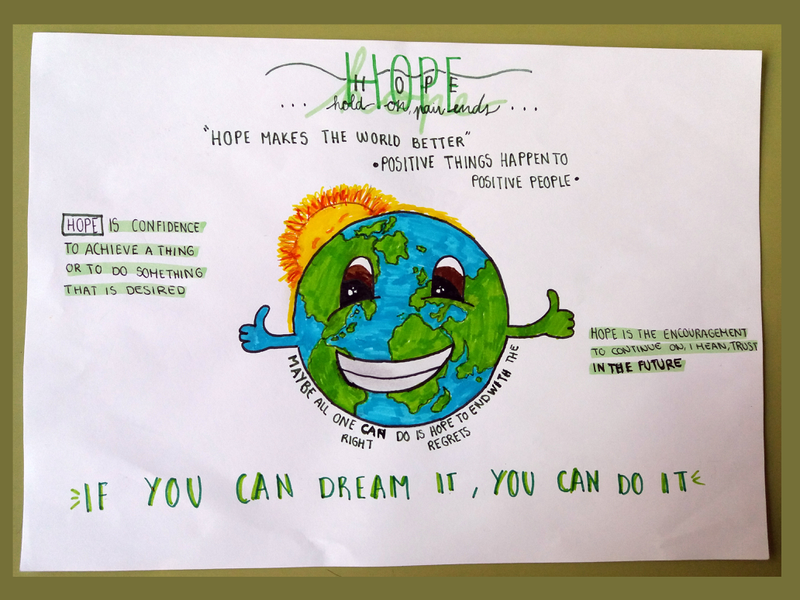 HOPE
hope
H O P E
... hold on, pain ends ...
"HOPE MAKES THE WORLD BETTER"
•POSITIVE THINGS HAPPEN TO
POSITIVE PEOPLE•
HOPE IS CONFIDENCE
TO ACHIEVE A THING
OR TO DO SOMETHING
THAT IS DESIRED
HOPE IS THE ENCOURAGEMENT
TO CONTINUE ON, I MEAN, TRUST
IN THE FUTURE
MAYBE ALL ONE CAN DO IS HOPE TO END WITH THE
RIGHT REGRETS
IF YOU CAN DREAM IT, YOU CAN DO IT